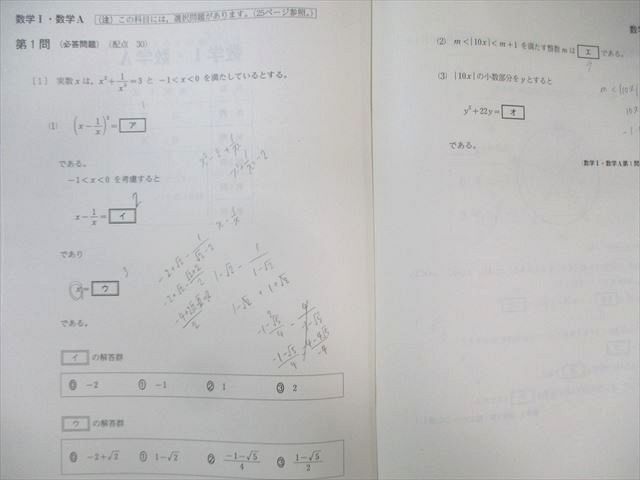 数学Ⅰ・数学A (注) この科目には,選択問題があります。(25ページ参照。)
第1問 (必答問題) (配点 30)
[1] 実数xは, x²+1/x²=3 と −1<x<0 を満たしているとする。
(1) (x−1/x)²=ア
である。
−1<x<0 を考慮すると
x−1/x=イ
2
であり
x=ウ
3
である。
イ の解答群
⓪ −2 ① −1 ② 1 ③ 2
ウ の解答群
⓪ −2+√2 ① 1−√2 ② (−1−√5)/4 ③ (1−√5)/2
x−1/x
1−√2 − 1/(1−√2)
1−√2 + 1+√2
(2) m<|10x|<m+1 を満たす整数mは エ である。
(3) |10x|の小数部分をyとすると
y²+22y=オ
である。
(数学Ⅰ・数学A第1問